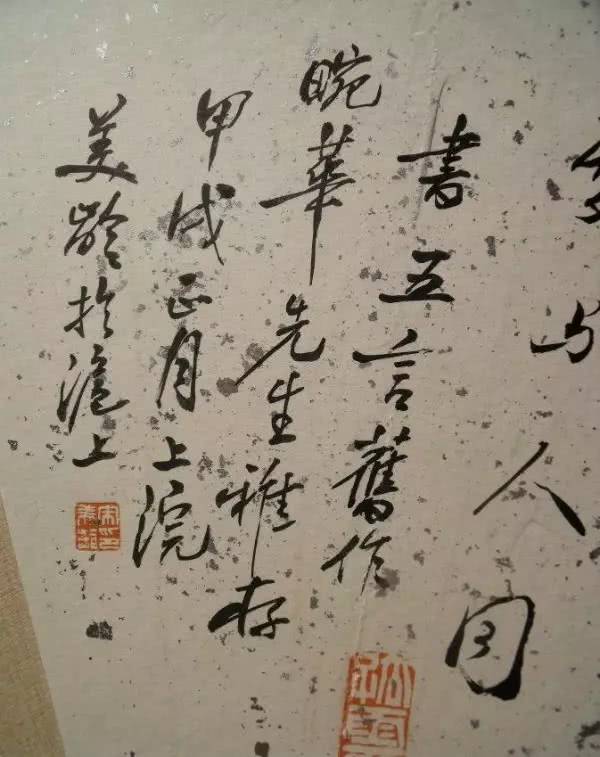 与人同
書五言舊作
畹華先生雅存
甲戌正月上浣
美齡於滬上